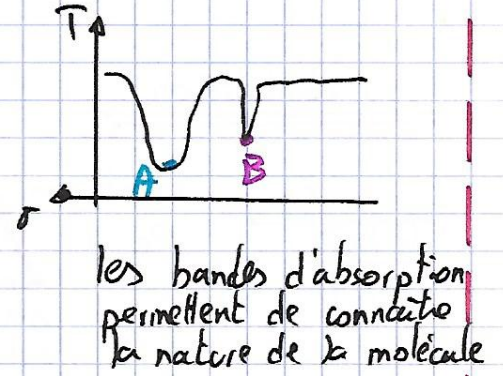 T
A
B
σ
les bandes d'absorption
permettent de connaître
la nature de la molécule